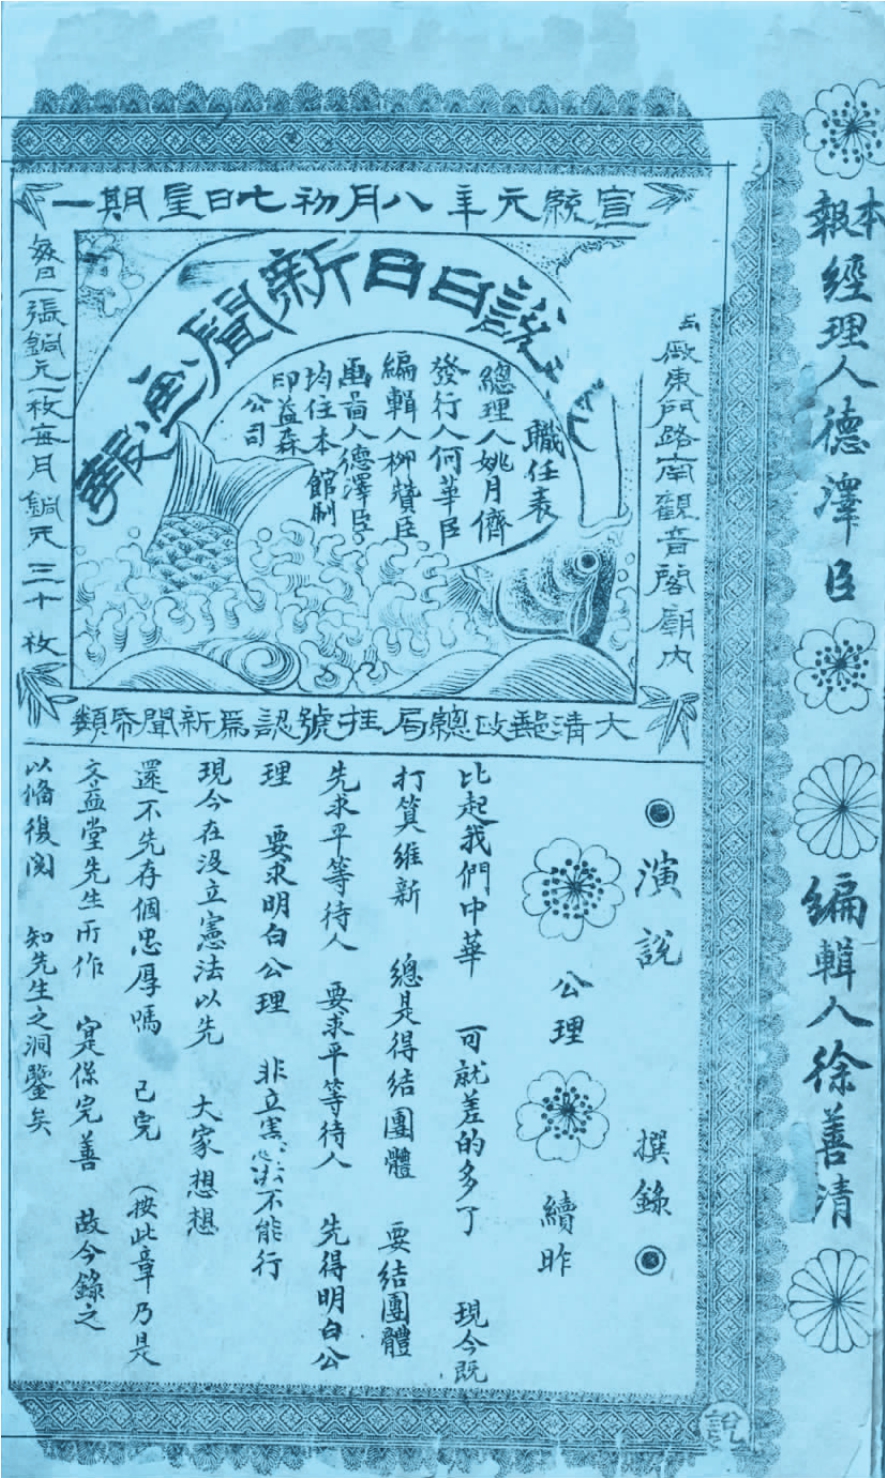 本報經理人德澤臣
編輯人徐善清
宣統元年八月初七日星期一
說日日新聞畫報
廠東門路南觀音閣廟內
職任表
總理人姚月儕
發行人何華臣
編輯人柳贊臣
畫首人德澤臣
均住本館刷
印益森
公司
每日一張銅元一枚每月銅元三十枚
大清郵政總局挂號認爲新聞帋類
演說 撰錄
公理 續昨
比起我們中華 可就差的多了 現今既
打算維新 總是得結團體 要結團體
先求平等待人 要求平等待人 先得明白公
理 要求明白公理 非立憲法不能行
現今在沒立憲法以先 大家想想
還不先存個忠厚嗎 已完 (按此章乃是
文益堂先生所作 寔係完善 故今錄之
以備復閱 知先生之洞鑒矣
說